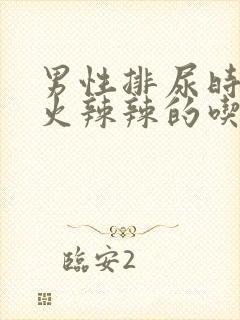 男性排尿时
火辣辣的喫
臨安2